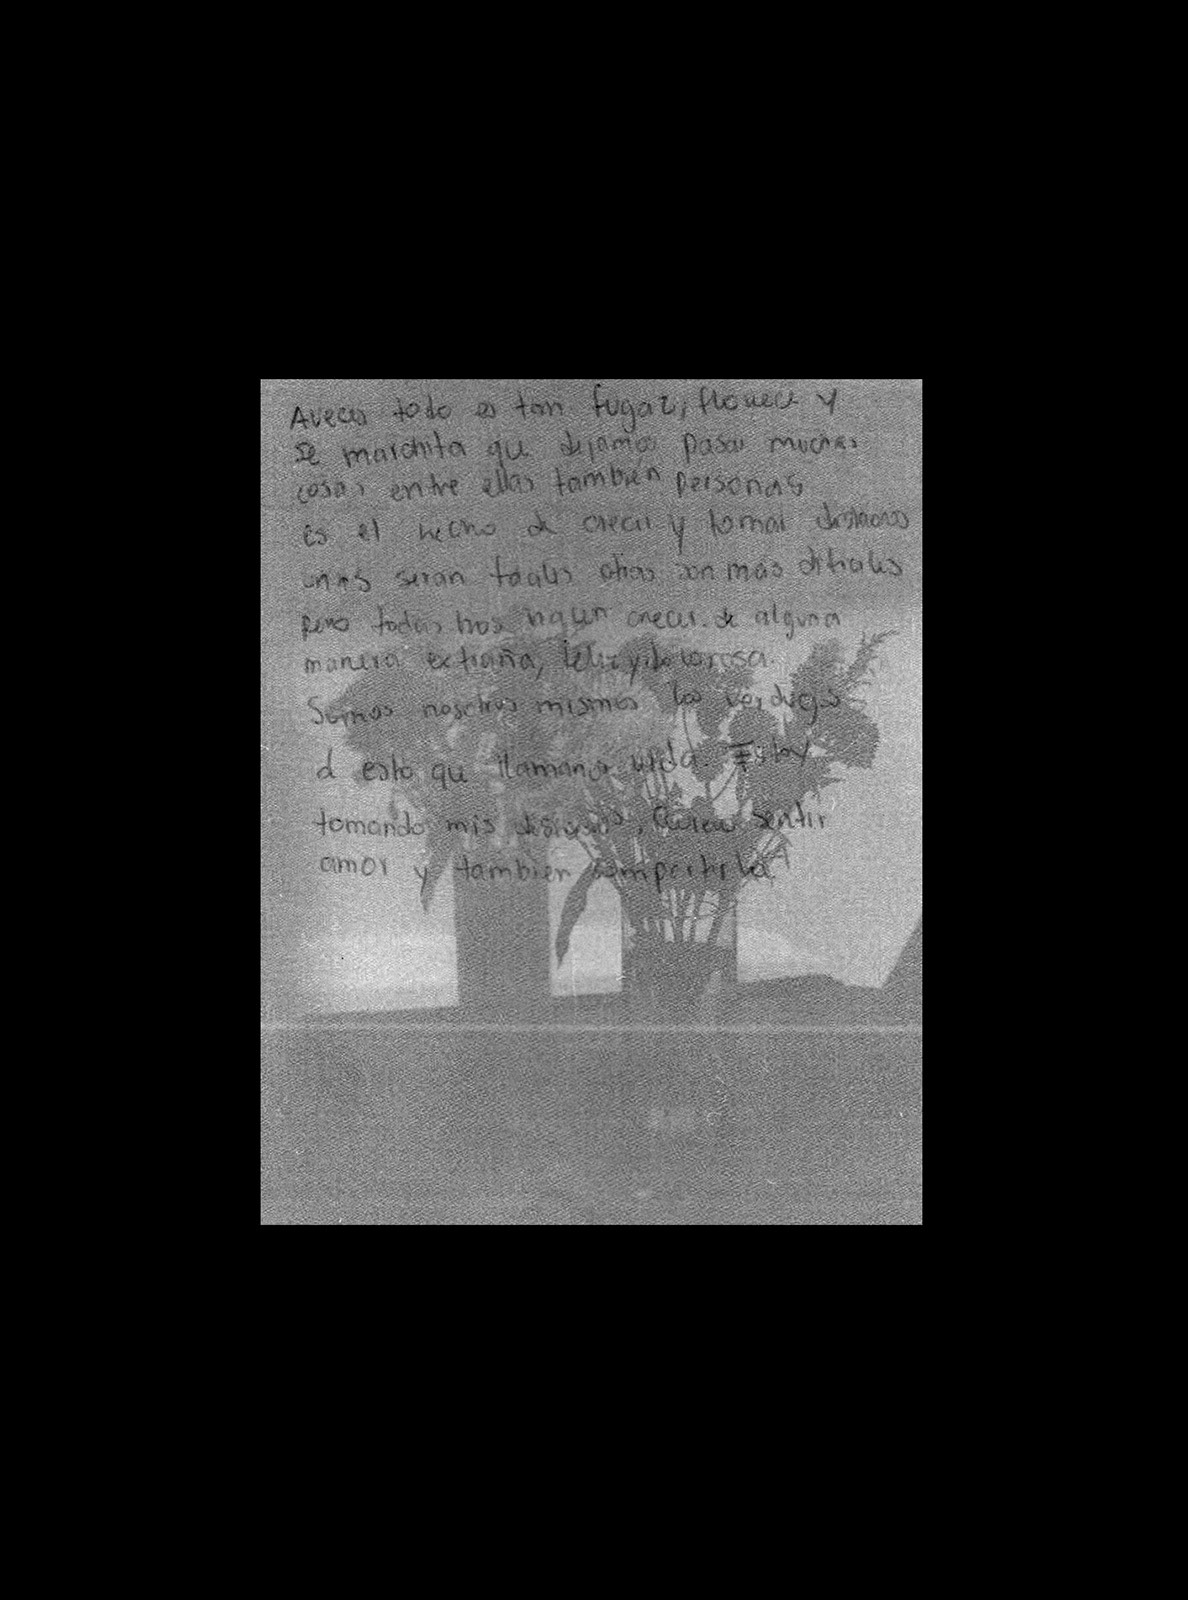 Aveces todo es tan fugaz, florece y
se marchita que dejamos pasar muchas
cosas entre ellas también personas
es el hecho de crecer y tomar
unas seran faciles otras son más dificiles
pero todas nos hacen crecer de alguna
manera extraña, feliz y dolorosa.
Somos nosotros mismos los verdugos
d esto que llamamos vida. Estoy
tomando mis sentir
amor y tambien